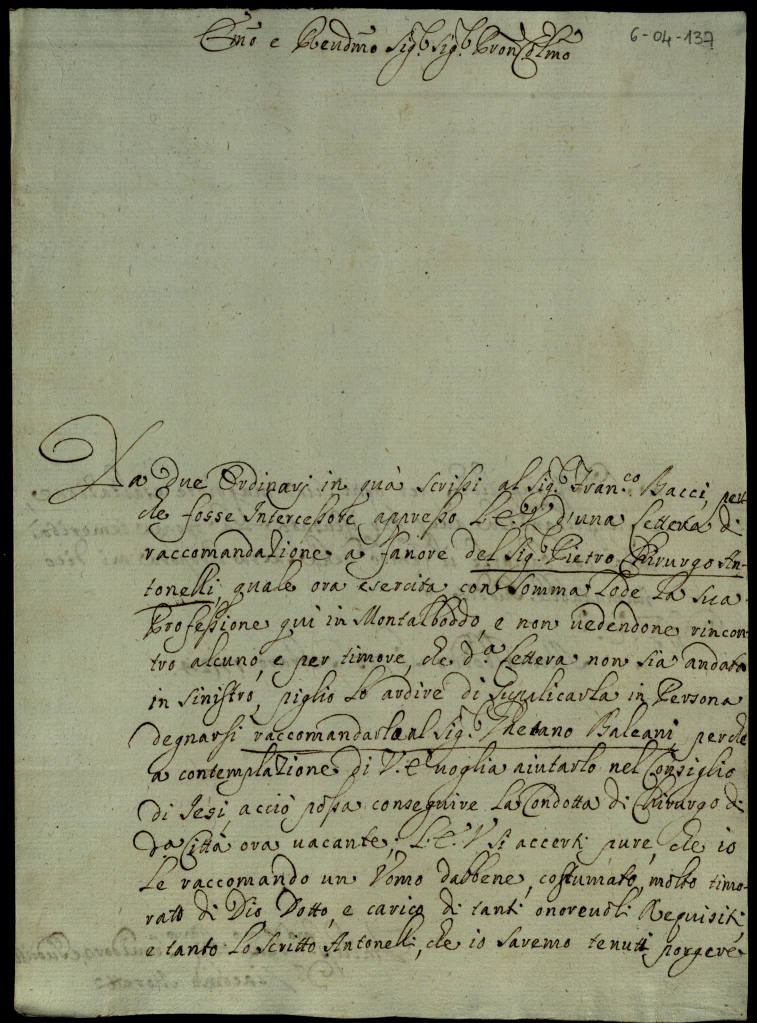 Emo e Revdmo Sigr Sigr Pron Colmo
6-04-137
Da due Ordinarj in quà scrissi al Sigr Franco Bacci, per
che fosse Intercessore appresso L'E.V. d'una Lettera di
raccomandazione a favore del Sigr Pietro Chirurgo An-
tonelli, quale ora esercita con somma lode la sua
Professione quì in Montalboddo, e non vedendone rincon
tro alcuno, e per timore, che da Lettera non sia andata
in sinistro, piglio lo ardire di supplicarla in Persona
degnarsi raccomandarlo al Sigr Gaetano Baleani perche
a contemplazione di V.E. voglia aiutarlo nel Consiglio
di Jesi, acciò possa conseguire la Condotta di Chirurgo di
da Città ora vacante; L'E.V. si accerti pure, che io
le raccomando un Uomo dabbene, costumato, molto timo-
rato di Dio Dotto, e carico di tanti onorevoli Requisiti,
e tanto lo scritto Antonelli, che io saremo tenuti porgere